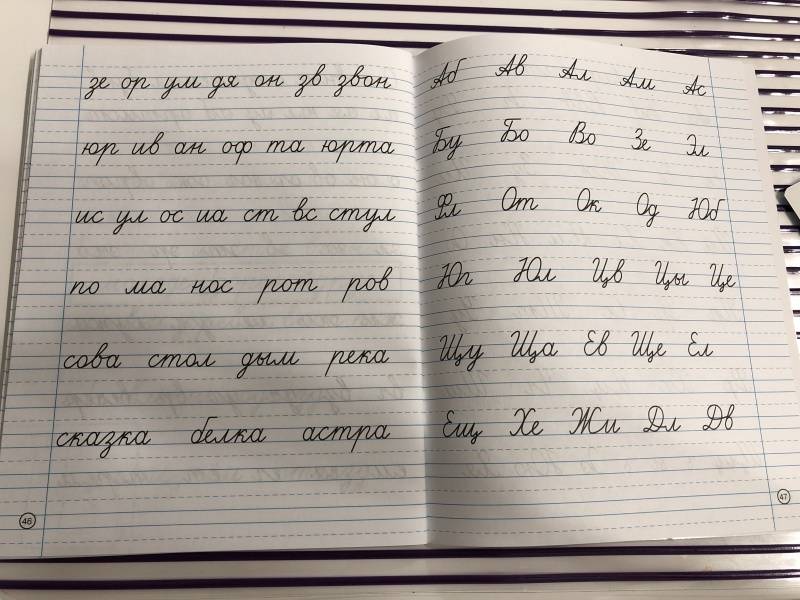 зе ор ум дя он зв звон
юр ив ан оф та юрта
ис ул ос иа ст вс стул
по ма нос рот ров
сова стол дым река
сказка белка астра
46
Аб Ав Ал Ам Ас
Бу Бо Во Зе Эл
Фл От Ок Од Юб
Юг Юл Цв Цы Це
Щу Ща Ев Ще Ел
Ещ Хе Жи Дл Дв
47